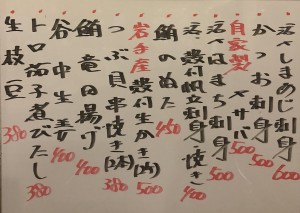 活〆しめじ刺身 600
かつお刺身 500
自家製〆サバ 500
活〆はまち刺身 500
活殻付帆立刺身・焼き 400
鮪のぬた 450
岩手産殻付生かき(1ヶ) 500
つぶ貝串焼き(2本) 380
鮪竜田揚げ 400
谷中生姜 400
トロ茄子煮びたし 380
生枝豆 380